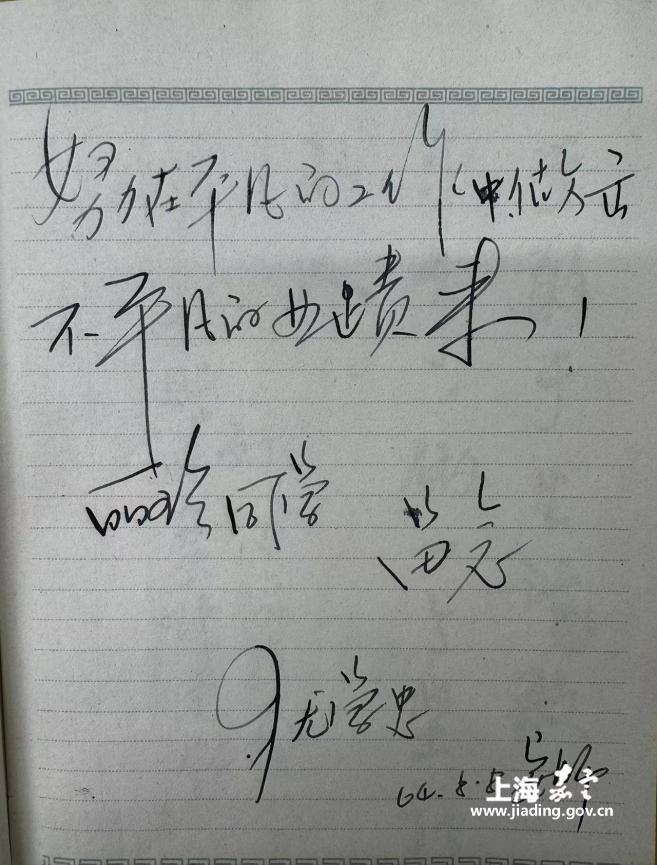 努力在平凡的工作中做出
不平凡的业蹟来！
丽玲同学 留念
尤学忠
64.8.8
上海嘉定
www.jiading.gov.cn